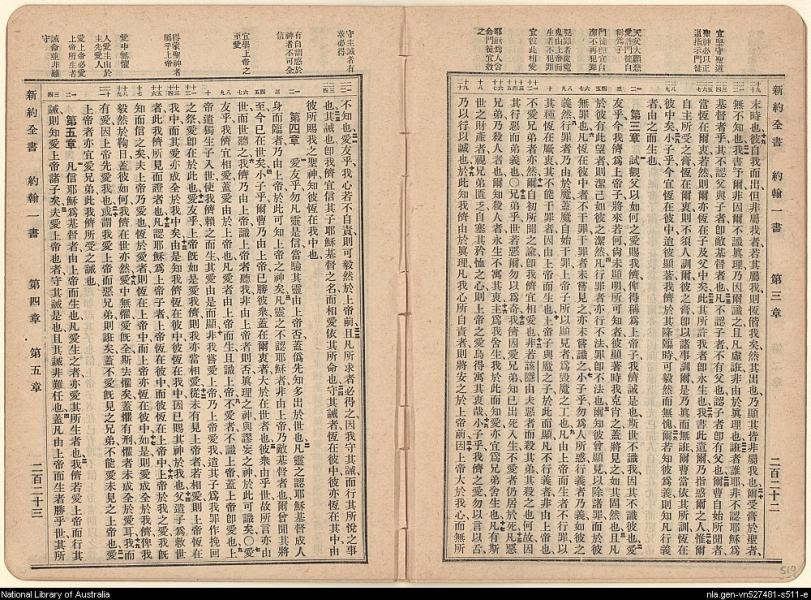 新約全書 約翰一書 第三章 二百二十二
宜堅守聖道
聖神必以正
道指示門徒
天父大顯慈
愛門徒自白
稱爲子
門徒宜自白
潔不再犯罪
犯罪者從魔
鬼由上帝而
生者不犯罪
宜彼此相愛
耶穌爲人舍
命門徒宜效
之
末時也彼自我而出但非屬我者若其屬我則仍偕我矣然其出也乃顯其皆非屬我也爾受膏於聖者
無不知也我書予爾非因爾不識眞理乃因爾識之且凡虛誑非由於眞理也誰者誰耶非不認耶穌爲
基督者乎其不認父與子者卽敵基督者也凡不認子者不有父也認子者卽有父也爾曹自始所聞者
當恆在爾衷若然則爾亦恆在子及父中矣此其所許我者卽永生也我書此遺爾乃指惑爾之人惟爾
自主所受之膏恆在爾衷則不須人訓爾彼之膏卽以諸事訓爾是乃眞而無誑爾曹當依其所訓恆在
彼中矣小子乎今宜恆在彼中迨彼顯著我儕於其降臨時可毅然而無愧爾若知彼爲義則知凡行義
者由之而生也
第三章 試觀父以如何之愛賜我儕俾得稱爲上帝子我儕誠是也斯世不識我因其不識彼也愛
友乎今我儕爲上帝子將來若何尚未顯明所可知者彼顯著時我克肖之蓋將見之如其固然也且凡
於彼有此望者則潔己如彼之潔然凡行罪者亦行不法罪卽不法也爾知彼曾顯見以除諸罪而於彼
無罪也凡恆在彼中者不行罪干罪者未嘗見之亦未嘗識之小子乎勿爲人所惑行義者乃義如彼之
義然行罪者乃由於魔蓋魔自始干罪上帝子所以顯見者爲毀魔之工也凡由上帝而生者不行罪以
其種恆在厥衷且不能干罪者因由上帝生也上帝子與魔之子於此而顯凡不行義者非由上帝也
不愛兄弟者亦然爾自初所聞之諭卽我儕宜相愛也非若該隱由夫惡者而殺其弟其殺之也何故因
其行惡而弟義也○兄弟乎世若惡爾勿以爲奇我儕因愛兄弟知已出死入生不愛者仍居於死凡惡
兄弟乃殺人者也爾知殺人者永生不寓其衷主爲我舍生我於此而知愛亦宜爲兄弟舍生也凡有斯
世之財產者視兄弟匱乏自塞其若恤之心則上帝之愛烏得寓其衷哉小子乎我儕之愛勿以言以舌
乃以行以誠也於此知我儕由於眞理凡我心所自責者則將安之於上帝前因上帝大於我心而無所
新約全書 約翰一書 第四章 第五章 二百二十三
守主誡者有
章必得
有自謂感於
神者不可全
信
宜學上帝之
至愛
得蒙聖神者
屬乎上帝
愛中無懼
人愛主由於
主先愛人
愛上帝必愛
上帝所生者
誡命並非難
守
不知也愛友乎我心若不自責則可毅然於上帝前且凡所求者必得之因我守其誡而行其所悅之事
也其誡也卽我儕宜信其子耶穌基督之名而相愛依其所命也守其誡者恆在彼中彼亦恆在其中由
彼所賜我之聖神知彼恆在我中也
第四章 愛友乎勿凡靈是信當驗其靈由上帝否蓋僞先知多出於世也凡靈之認耶穌基督成人
身而臨者乃由上帝於此可知上帝之神矣凡靈之不認耶穌者非由上帝乃敵基督者也爾曾聞其將
至今已在世矣小子乎爾曹乃由上帝已勝彼衆蓋在爾衷者大於在世者也彼衆由乎世故所言亦由
世而世聽之我儕乃由上帝識上帝者聽我非由上帝者則否眞理之神與謬妄之神於此可識矣○愛
友乎我儕宜相愛蓋愛由於上帝也凡愛者由上帝而生且識上帝不愛者不識上帝蓋上帝卽愛也上
帝遣獨生子入世使我儕賴之而生其愛由是而顯非我嘗愛上帝乃上帝愛我遣其子爲我罪作挽回
之祭愛卽在於此也愛友乎上帝旣如是愛我儕則我亦當相愛從未有見上帝者若相愛則上帝恆在
我中而其愛亦成全於我中矣由是知我儕恆在彼中彼恆在我中因已賜其神於我也父遣子爲救世
者此我儕所見而證者也凡認耶穌爲上帝子者上帝恆在彼中而彼恆在上帝中上帝於我之愛我旣
知而信之矣夫上帝乃愛也恆於愛者則恆在上帝中而上帝亦恆在彼中如是則愛成全於我儕俾我
毅然於鞫日蓋彼如何我儕在世亦然愛中無懼愛旣全斯去懼矣蓋懼有刑懼者未成全於愛耳我而
有愛因上帝先愛我也或謂我愛上帝而惡兄弟則誑矣蓋不愛旣見之兄弟不能愛未見之上帝也愛
上帝者亦宜愛兄弟此我儕所受之誡也
第五章 凡信耶穌爲基督者由上帝而生也凡愛生之者亦愛其所生者也我儕若愛上帝而行其
誡則知愛上帝諸子矣夫愛上帝也者守其誡是也且其誡非難任也蓋凡由上帝而生者勝乎世其所
519
National Library of Australia
nla.gen-vn527481-s511-e